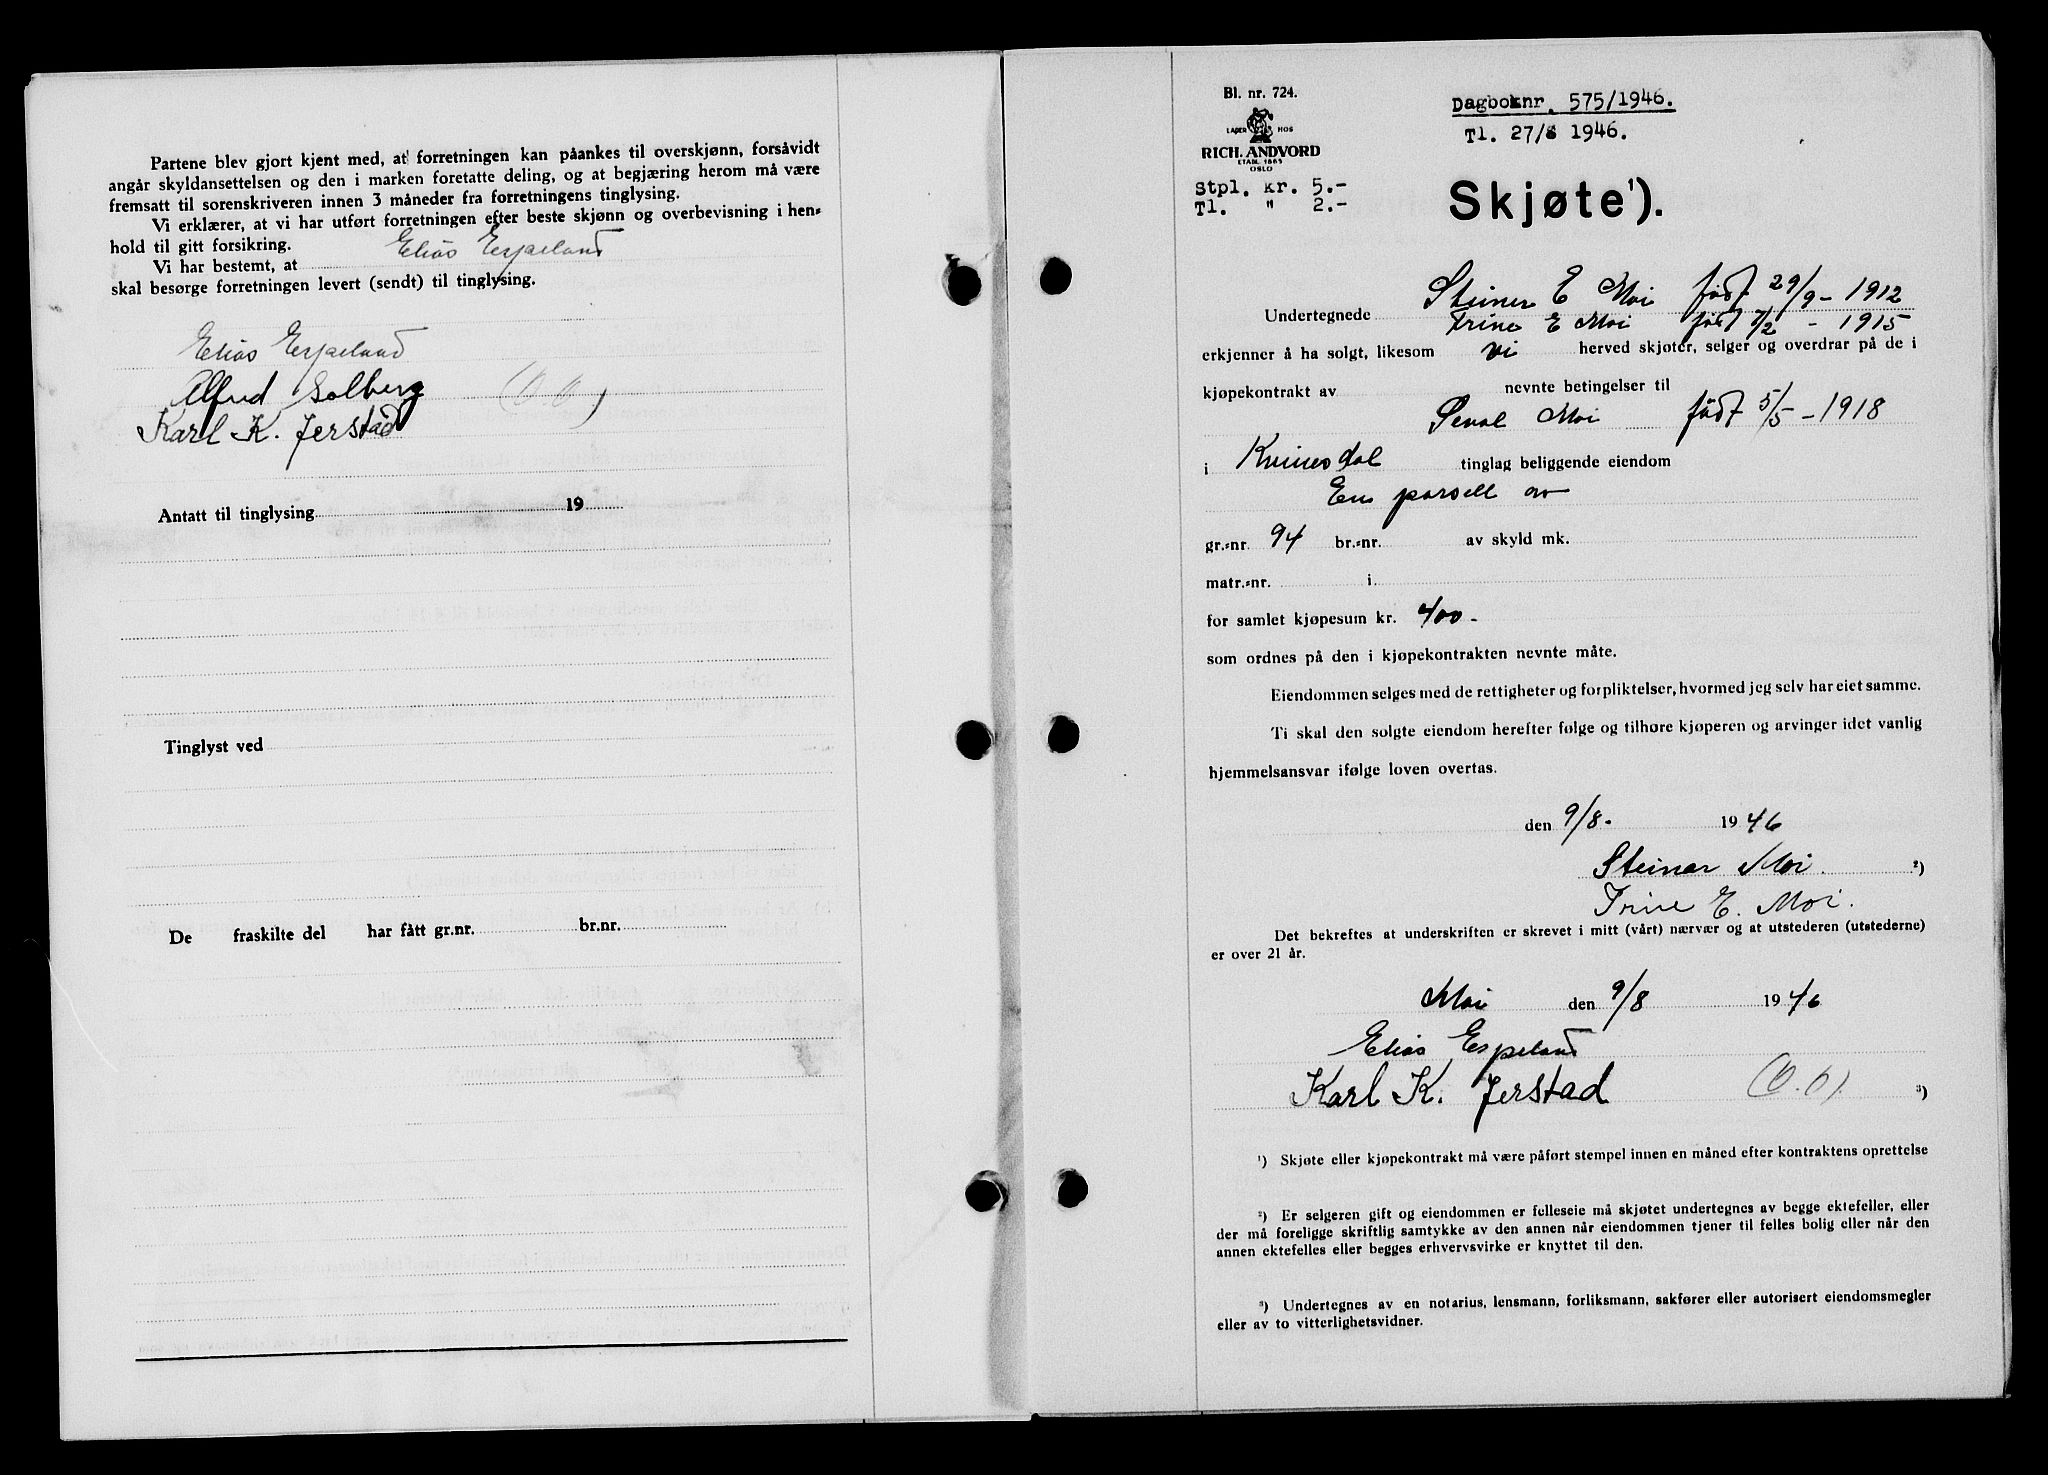 Partene blev gjort kjent med, at forretningen kan påankes til overskjønn, forsåvidt
angår skyldansettelsen og den i marken foretatte deling, og at begjæring herom må være
fremsatt til sorenskriveren innen 3 måneder fra forretningens tinglysing.
Vi erklærer, at vi har utført forretningen efter beste skjønn og overbevisning i hen-
hold til gitt forsikring.
Vi har bestemt, at Elias Espeland
skal besørge forretningen levert (sendt) til tinglysing.
Elias Espeland
Alfred Solberg
Karl K. Jerstad
Antatt til tinglysing 19
Tinglyst ved
De fraskilte del har fått gr.nr. br.nr.
Bl. nr. 724.
LAGER HOS
RICH. ANDVORD
ETABL 1865
OSLO
Stpl. kr. 5.-
Tl. " 2.-
Dagboknr. 575/1946.
Tl. 27/8 1946.
Skjøte¹).
Steinar E Moi født 29/9 - 1912
Undertegnede Trine E Moi født 7/2 - 1915
erkjenner å ha solgt, likesom vi herved skjøter, selger og overdrar på de i
kjøpekontrakt av nevnte betingelser til
Seval Moi født 5/5 - 1918
i Kvinesdal tinglag beliggende eiendom
En parsell av
gr.-nr. 94 br.-nr. av skyld mk.
matr.-nr. i
for samlet kjøpesum kr. 400.-
som ordnes på den i kjøpekontrakten nevnte måte.
Eiendommen selges med de rettigheter og forpliktelser, hvormed jeg selv har eiet samme.
Ti skal den solgte eiendom herefter følge og tilhøre kjøperen og arvinger idet vanlig
hjemmelsansvar ifølge loven overtas.
den 9/8. 1946
Steinar Moi. ²)
Trine E. Moi.
Det bekreftes at underskriften er skrevet i mitt (vårt) nærvær og at utstederen (utstederne)
er over 21 år.
Moi den 9/8 1946
Elias Espeland
Karl K. Jerstad ³)
¹) Skjøte eller kjøpekontrakt må være påført stempel innen en måned efter kontraktens oprettelse
²) Er selgeren gift og eiendommen er felleseie må skjøtet undertegnes av begge ektefeller, eller
der må foreligge skriftlig samtykke av den annen når eiendommen tjener til felles bolig eller når den
annen ektefelles eller begges erhvervsvirke er knyttet til den.
³) Undertegnes av en notarius, lensmann, forliksmann, sakfører eller autorisert eiendomsmegler
eller av to vitterlighetsvidner.